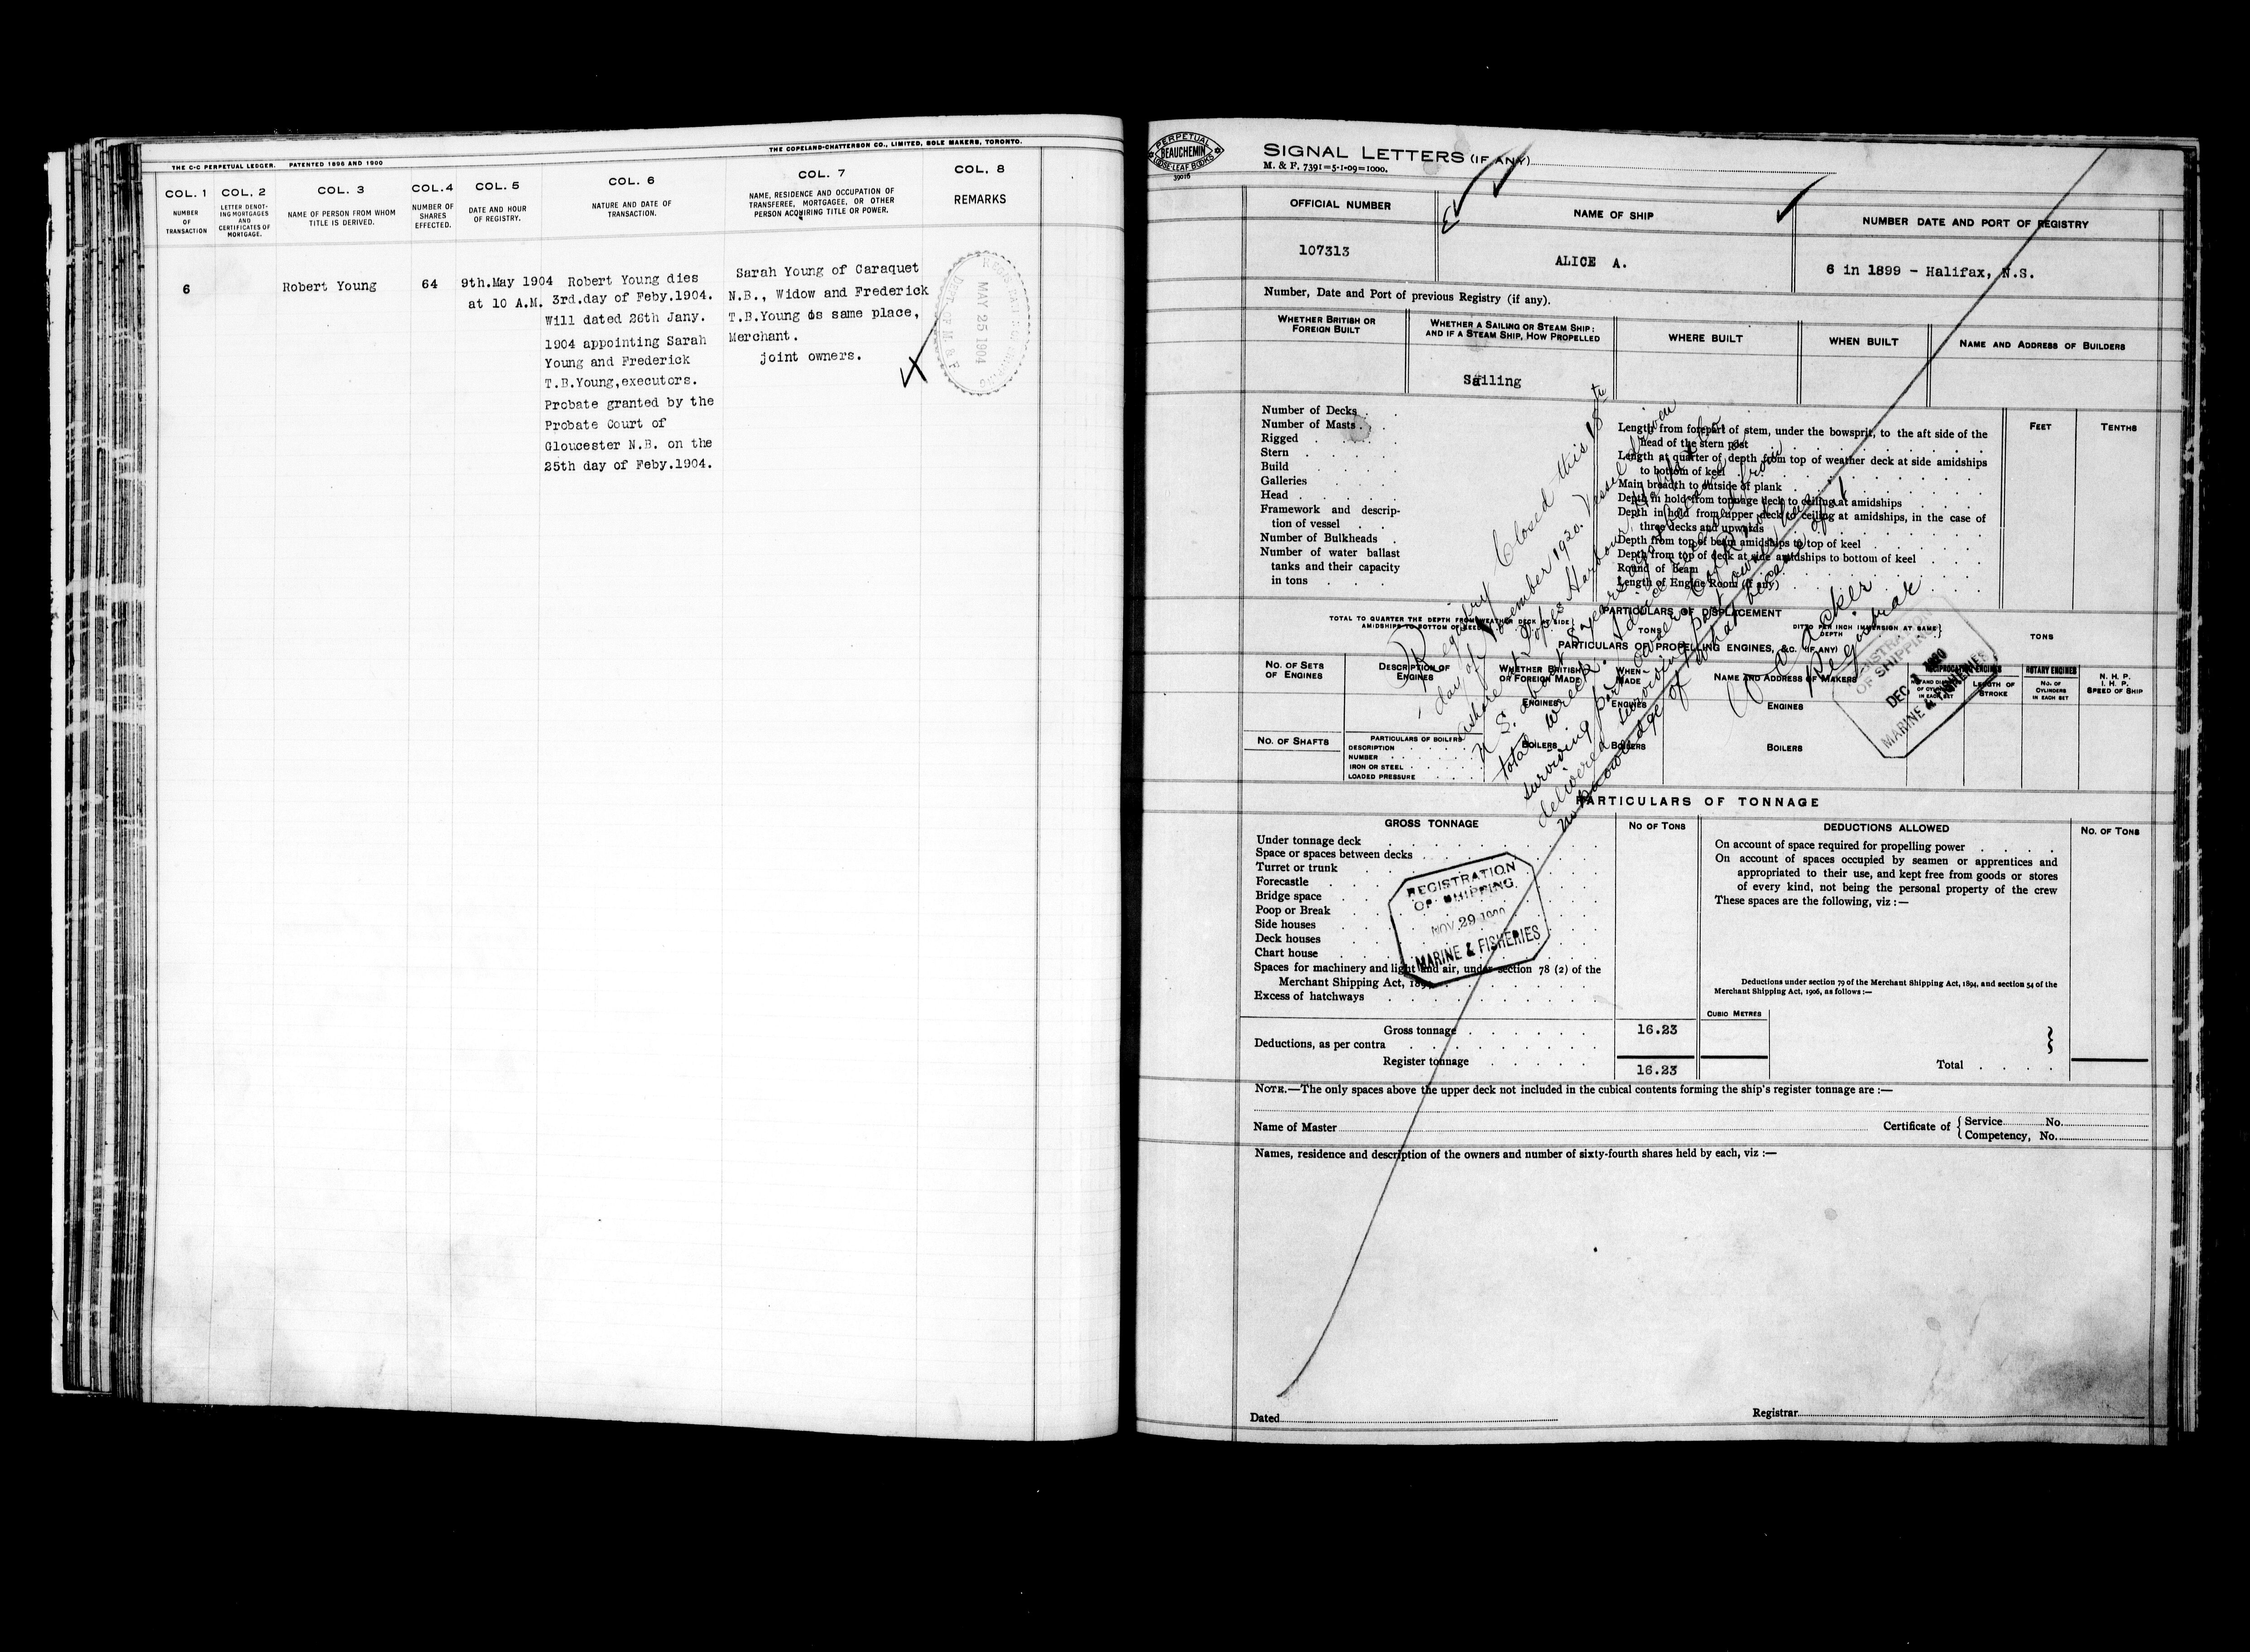 THE C-C PERPETUAL LEDGER. PATENTED 1896 AND 1900
THE COPELAND-CHATTERSON CO., LIMITED, SOLE MAKERS, TORONTO.
COL. 1
NUMBER
OF
TRANSACTION
COL. 2
LETTER DENOT-
ING MORTGAGES
AND
CERTIFICATES OF
MORTGAGE.
COL. 3
NAME OF PERSON FROM WHOM
TITLE IS DERIVED.
COL. 4
NUMBER OF
SHARES
EFFECTED.
COL. 5
DATE AND HOUR
OF REGISTRY.
COL. 6
NATURE AND DATE OF
TRANSACTION.
COL. 7
NAME, RESIDENCE AND OCCUPATION OF
TRANSFEREE, MORTGAGEE, OR OTHER
PERSON ACQUIRING TITLE OR POWER.
COL. 8
REMARKS
6
Robert Young
64
9th.May 1904
at 10 A.M.
Robert Young dies
3rd.day of Feby.1904.
Will dated 26th Jany.
1904 appointing Sarah
Young and Frederick
T.B.Young,executors.
Probate granted by the
Probate Court of
Gloucester N.B. on the
25th day of Feby.1904.
Sarah Young of Caraquet
N.B., Widow and Frederick
T.B.Young os same place,
Merchant.
joint owners.
MAY 25 1904
PERPETUAL
BEAUCHEMIN
LOOSE-LEAF BOOKS
39016
SIGNAL LETTERS (IF ANY)
M. & F. 7391=5-1-09=1000.
OFFICIAL NUMBER
107313
NAME OF SHIP
ALICE A.
NUMBER DATE AND PORT OF REGISTRY
6 in 1899 - Halifax, N.S.
Number, Date and Port of previous Registry (if any).
WHETHER BRITISH OR
FOREIGN BUILT
WHETHER A SAILING OR STEAM SHIP:
AND IF A STEAM SHIP, HOW PROPELLED
Sailing
WHERE BUILT
WHEN BUILT
NAME AND ADDRESS OF BUILDERS
Number of Decks
Number of Masts
Rigged
Stern
Build
Galleries
Head
Framework and descrip-
tion of vessel
Number of Bulkheads
Number of water ballast
tanks and their capacity
in tons
FEET
TENTHS
Length from forepart of stem, under the bowsprit, to the aft side of the
head of the stern post
Length at quarter of depth from top of weather deck at side amidships
to bottom of keel
Main breadth to outside of plank
Depth in hold from tonnage deck to ceiling at amidships
Depth in hold from upper deck to ceiling at amidships, in the case of
three decks and upwards
Depth from top of beam amidships to top of keel
Depth from top of deck at side amidships to bottom of keel
Round of beam
Length of Engine Room (if any)
Registry Closed this 18th
day of November 1920. Vessel driven
ashore at Popes Harbour, Halifax Co.
N. S. about 8 years ago
total wreck. Advice received from
surviving part owner.
no knowledge of what became of
Registrar
PARTICULARS OF DISPLACEMENT
TOTAL TO QUARTER THE DEPTH FROM WEATHER DECK AT SIDE
AMIDSHIPS TO BOTTOM OF KEEL
TONS
DITTO PER INCH IMMERSION AT SAME
DEPTH
TONS
PARTICULARS OF PROPELLING ENGINES, &C. (IF ANY)
NO. OF SETS
OF ENGINES
DESCRIPTION OF
ENGINES
WHETHER BRITISH
OR FOREIGN MADE
WHEN
MADE
NAME AND ADDRESS OF MAKERS
RECIPROCATING ENGINES
LENGTH OF
STROKE
ROTARY ENGINES
NO. OF
CYLINDERS
IN EACH SET
N. H. P.
I. H. P.
SPEED OF SHIP
ENGINES
ENGINES
ENGINES
NO. OF SHAFTS
PARTICULARS OF BOILERS
DESCRIPTION
NUMBER
IRON OR STEEL
LOADED PRESSURE
BOILERS
BOILERS
BOILERS
OF SHIPPING
DEC 1 1920
MARINE & FISHERIES
PARTICULARS OF TONNAGE
GROSS TONNAGE
NO OF TONS
DEDUCTIONS ALLOWED
NO. OF TONS
Under tonnage deck
Space or spaces between decks
Turret or trunk
Forecastle
Bridge space
Poop or Break
Side houses
Deck houses
Chart house
Spaces for machinery and light and air, under section 78 (2) of the
Merchant Shipping Act, 1894
Excess of hatchways
REGISTRATION
OF SHIPPING
NOV 29
MARINE & FISHERIES
On account of space required for propelling power
On account of spaces occupied by seamen or apprentices and
appropriated to their use, and kept free from goods or stores
of every kind, not being the personal property of the crew
These spaces are the following, viz :—
Deductions under section 79 of the Merchant Shipping Act, 1894, and section 54 of the
Merchant Shipping Act, 1906, as follows :—
CUBIC METRES
Gross tonnage 16.23
Deductions, as per contra
Register tonnage 16.23
Total
NOTE.—The only spaces above the upper deck not included in the cubical contents forming the ship's register tonnage are :—
Name of Master
Certificate of { Service No.
Competency, No.
Names, residence and description of the owners and number of sixty-fourth shares held by each, viz :—
Dated
Registrar